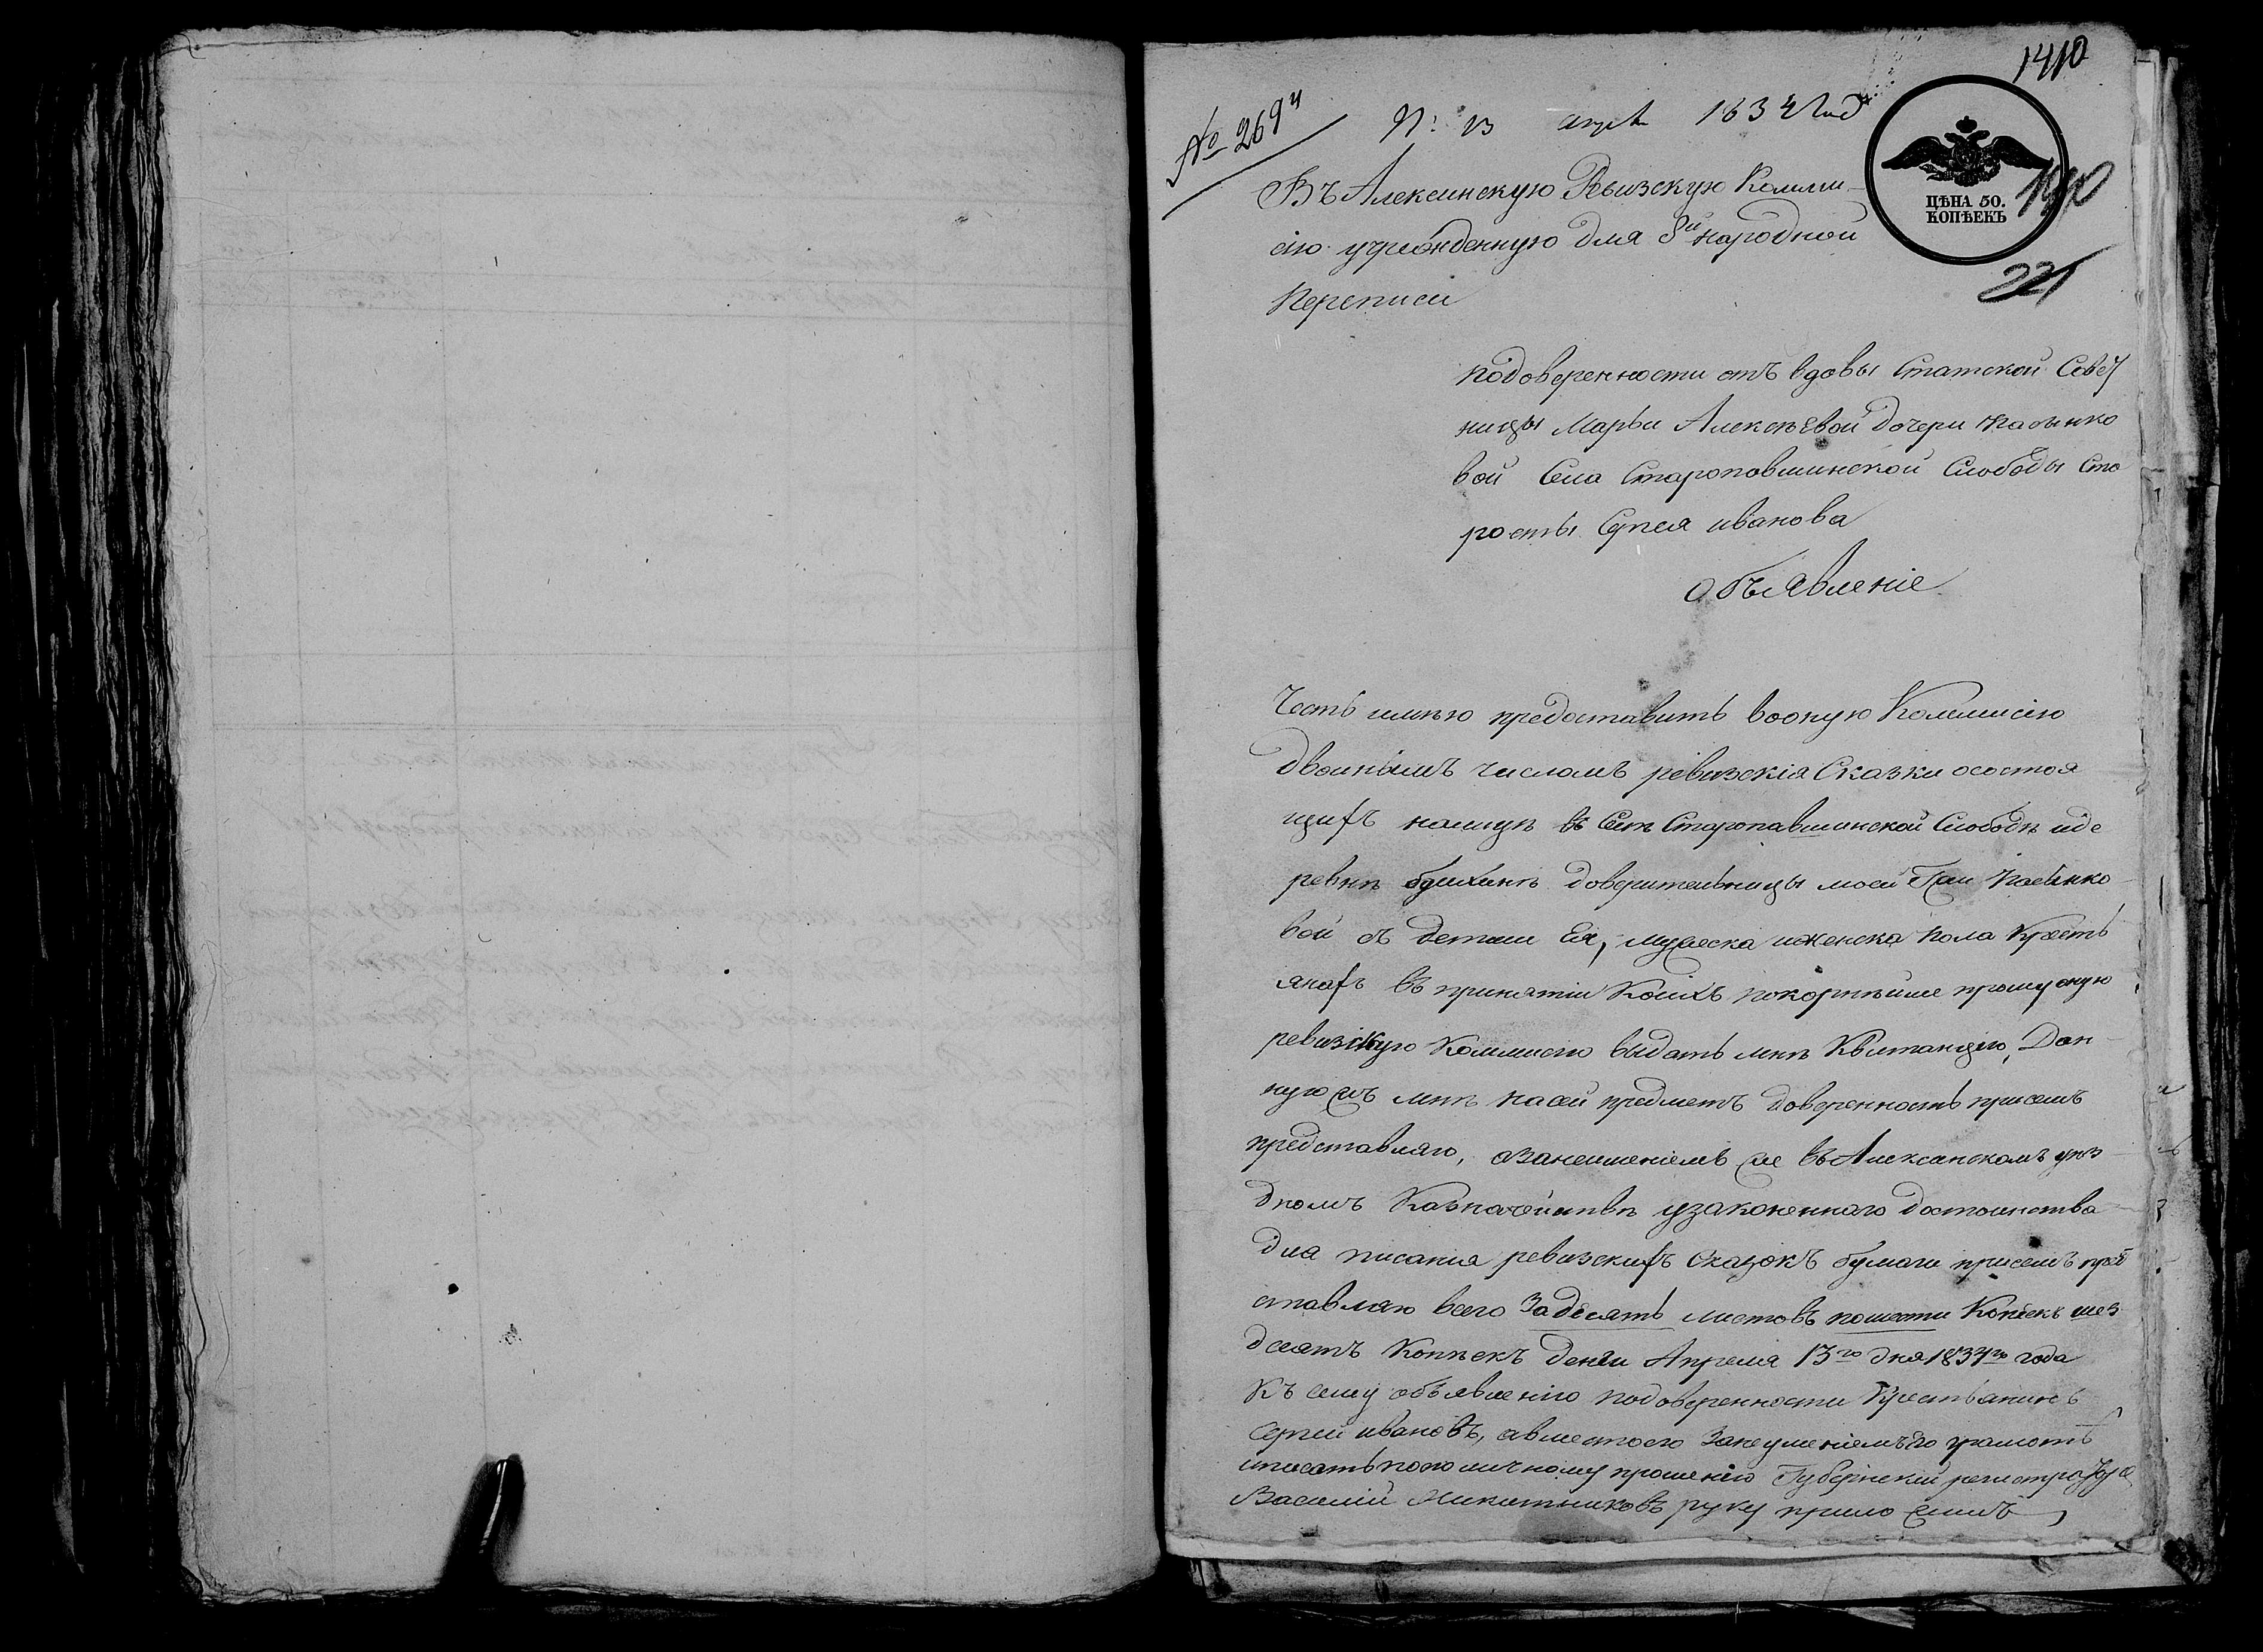 1410
№ 269
13 апр 1834 год
ЦѢНА 50.
КОПѢЕКЪ
1410
221
Въ Алексинскую Ревизскую Комми
сію учрежденную для 8й народной
Переписи
подоверенности отъ вдовы Статской Совѣт
ницы Марьи Алексѣевой дочери
вой Села Старопавшинской Слободы Ста
росты Сергея иванова
объявленіе
Честь имѣю предоставить вооную Коммисію
двойнымъ числомъ ревизскія Сказки осостоя
щихъ налицо в Селѣ Старопавшинской Слободѣ иде
ревнѣ доверительницы моей Гжи
вой съ детьми Ея, мужеска иженска пола Кресть
янахъ въ принятіи Коихъ покорнѣйше прошу оную
ревизскую Коммисію выдать мнѣ Квитанцію, Дан
ную мнѣ насей предметъ доверенность присемъ
представляю, азанеимениемъ въ Алексинскомъ уѣз
дномъ Казначействѣ узаконенного достоинства
для писания ревизскихъ Сказокъ бумаги присемъ пред
ставляю всего За десять листовъ пошести Копѣекъ шез
десятъ Копѣекъ денги Апреля 13го дня 1834го года
Къ сему объявлению подоверенности Крестьянинъ
Сергей ивановъ, авместоего Занеумениемъ грамотѣ
иписать поего личному прошению Губернский регистраторъ
Василий Никитниковъ руку приложилъ